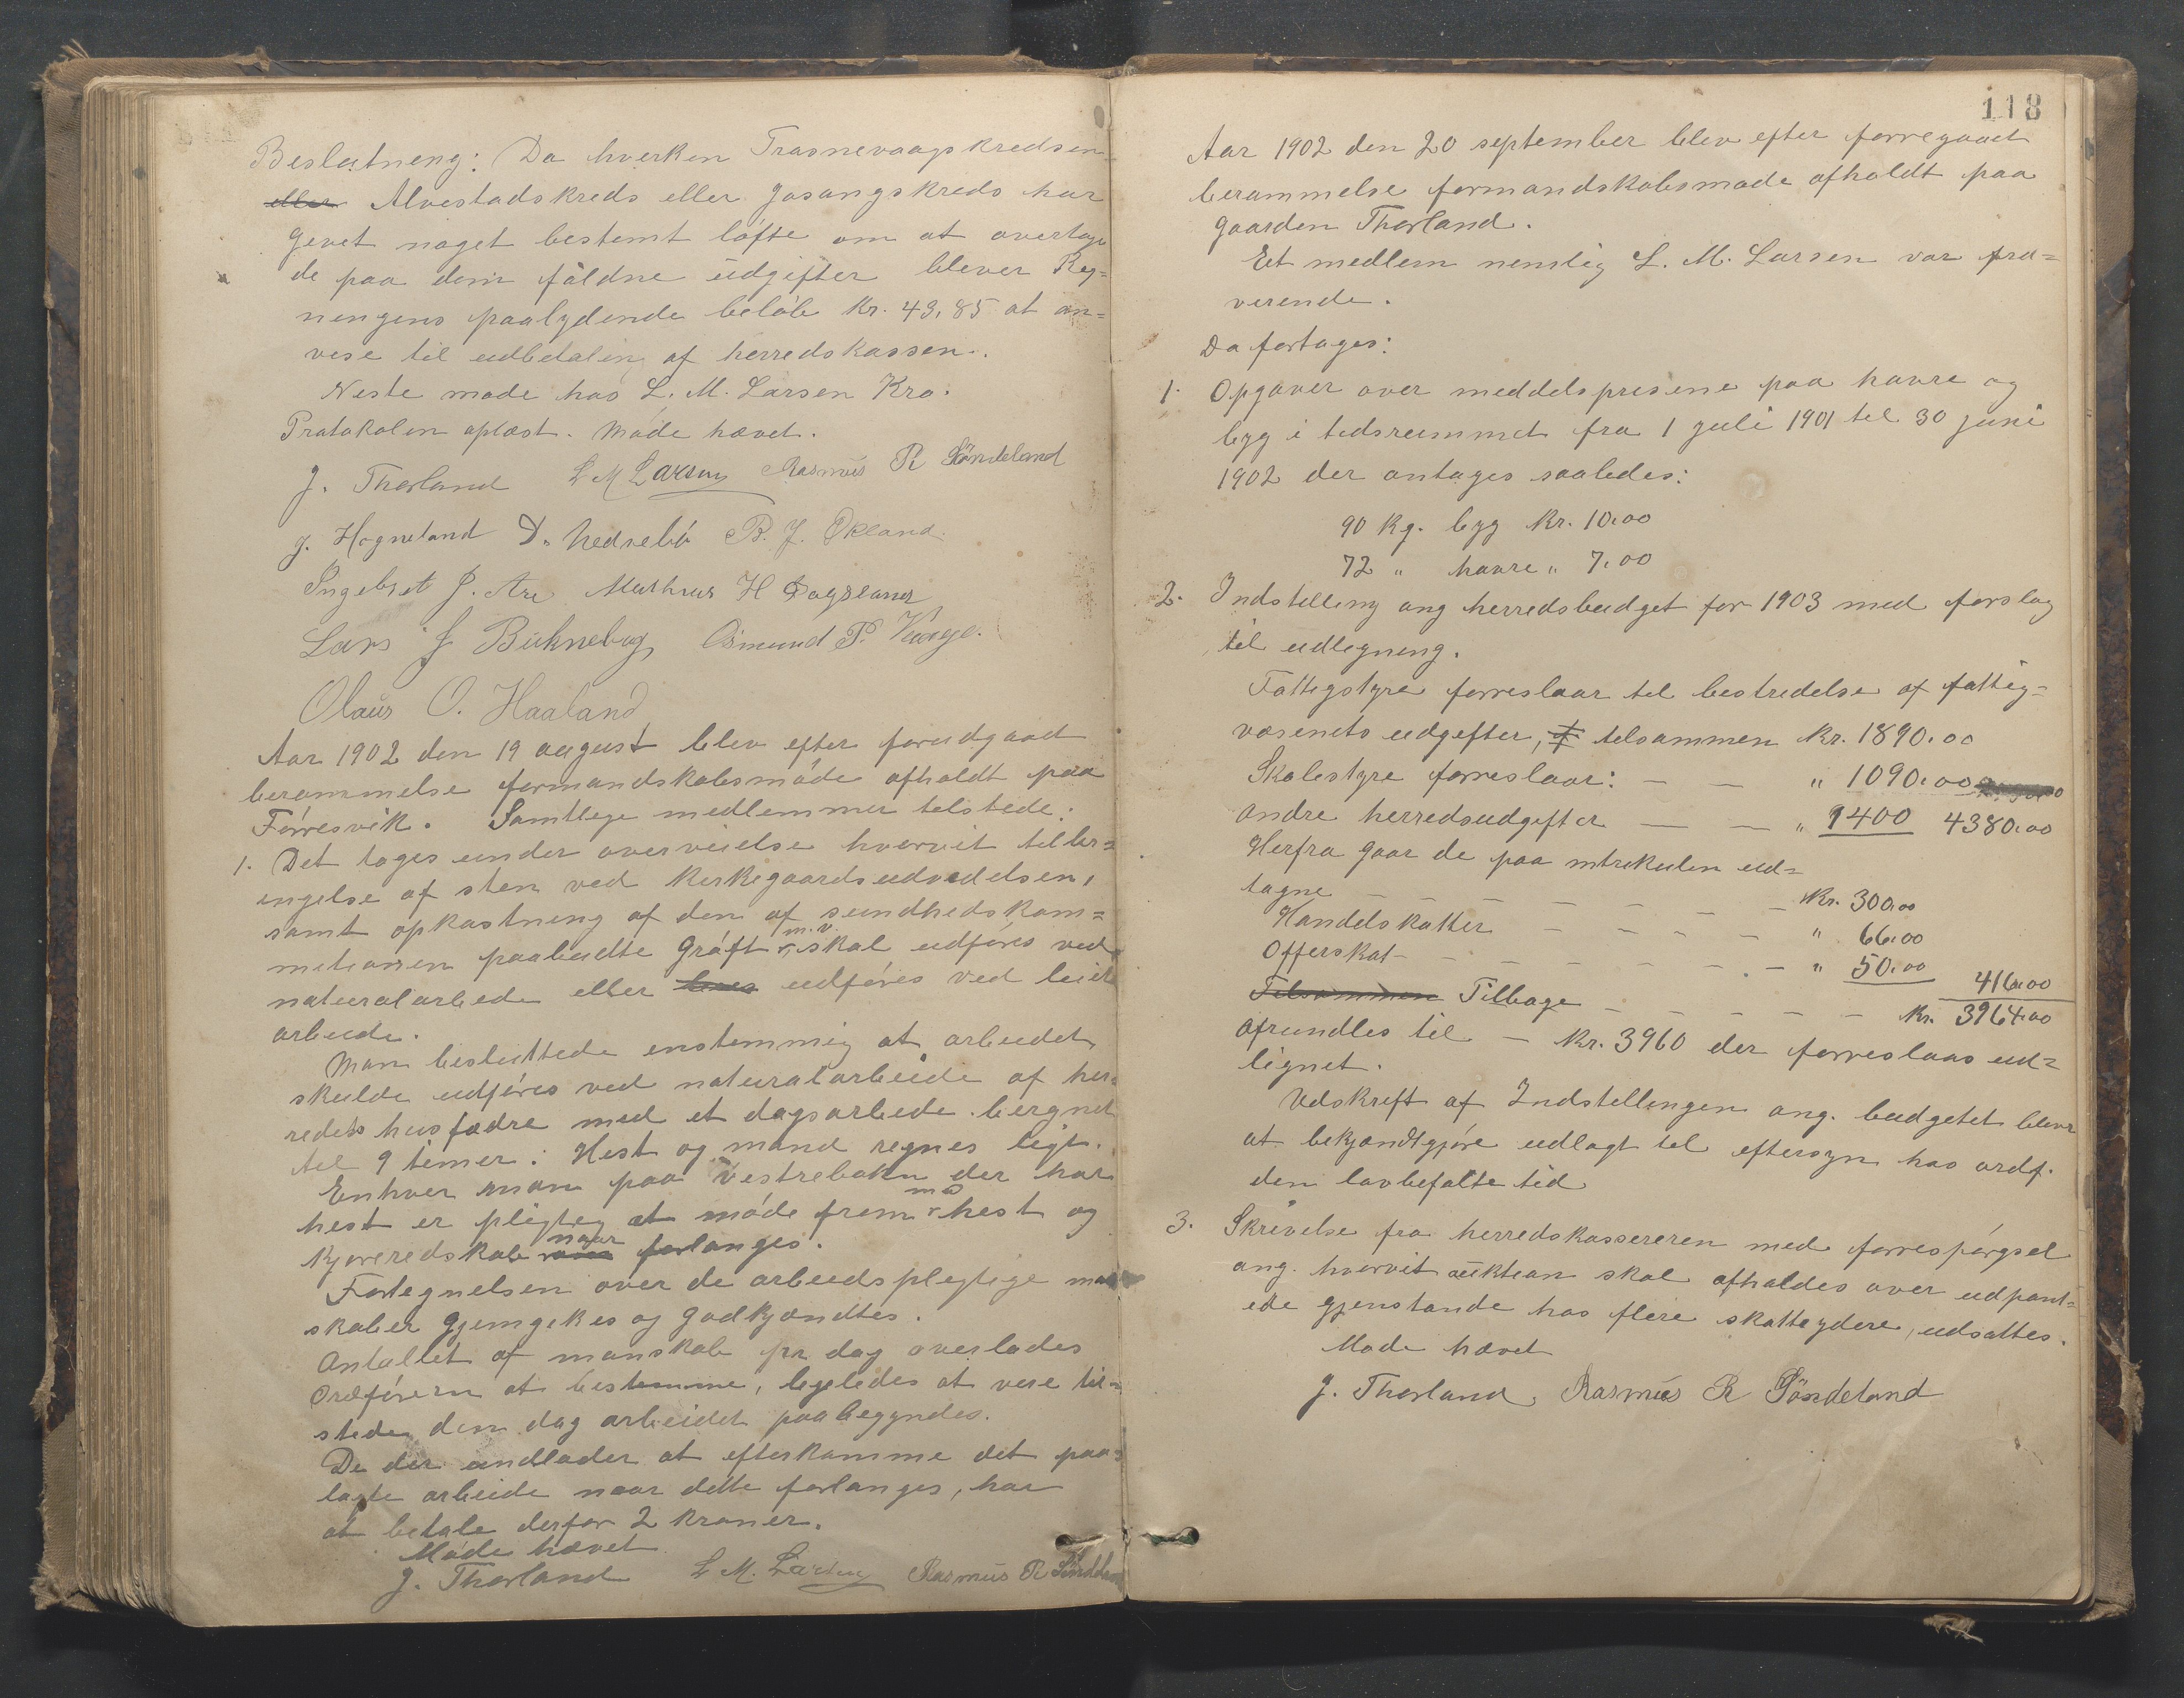 Beslutneng: Da hverken Trasnevaagskredsen
eller Alvestadskreds eller Jøsangskreds har
gevet noget bestemt løfte om at overtage
de paa dem faldne udgifter blever Reg=
nengens paalydende beløb Kr. 43,85 at an=
vese til udbetaling af herredskassen.
Neste møde hos L. M. Larsen Kro.
Protokolen oplæst. Møde hævet.
J. Thorland L M Larsen Rasmus R Søndeland
J. Hogneland D. Nedrebø B. J. Økland.
Ingebret J. Are Mathias H Dagsland
Lars J Buknebøg Osmund P. Vaage.
Olaus O. Haaland
Aar 1902 den 19 august blev efter forudgaad
berammelse formandskabsmøde afholdt paa
Førresvik. Samtlege medlemmer telstede:
1. Det tages under overveielse hvorvit telbr=
engelse af sten ved Kerkegaardsudvedelsen,
samt opkastneng af den af sundhedskom=
metionen paabudte Grøft m.v. skal udføres ved
naturalarbeide eller udføres ved leiet
arbeide.
Man besluttede enstemmig at arbeidet
skulde udføres ved naturalarbeide af her=
redets husfædre med et dagsarbeide beregnet
tel 9 timer: Hest og mand regnes ligt.
Enhver man paa Vestrebokn der har
hest er pligteg at møde frem m hest og
kjøreredskab naar forlanges.
Fortegnelsen over de arbeidsplegtige man
skaber gjemgekes og godkjændtes.
Antallet af manskab pr dag overlades
Ordføreren at bestemme, legeledes at vere til=
stede den dag arbeidet paabegyndes.
De der undlader at efterkomme det paa=
lagte arbeide naar dette forlanges, har
at betale derfor 2 kroner.
Møde hævet
J. Thorland L M. Larsen Rasmus R Søndeland
118
Aar 1902 den 20 september blev efter forregaaet
berammelse formandskabsmøde afholdt paa
gaarden Thorland.
Et medlem nemlig L. M. Larsen var fra=
verende.
Da fortages:
1. Opgaver over meddelsprisene paa havre og
byg i tedsrummet fra 1 juli 1901 til 30 juni
1902 der antages saaledes:
90 Kg. byg Kr. 10.00
72 " havre " 7.00
2. Indstilling ang herredsbudget for 1903 med forslag
til udlegning.
Fattigstyre forreslaar til bestredelse af fattig=
væsenets udgefter, telsammen Kr. 1890.00
Skolestyre forreslaar: — — " 1090.00
Andre herredsudgefter — — " 1400 4380.00
Herfra gaar de paa mtrekulen ud=
tagne — — — — — — Kr. 300.00
Handelskatter — — — — — " 66.00
Offerskat — — — — — — — " 50.00 416.00
Telsammen Tilbage — — — — — Kr. 3964.00
afrundles til — Kr. 3960 der forreslaas ud=
lignet.
Udskreft af Indstellingen ang. budgetet blever
at bekjendtgjøre udlagt tel eftersyn hos ordf.
den lovbefalte tid
3. Skrivelse fra herredskassereren med forrespørgsel
ang. hvorvit auktion skal afholdes over udpant=
ede gjenstande hos flere skatteydere, udsattes.
Møde hævet
J. Thorland, Rasmus R Søndeland